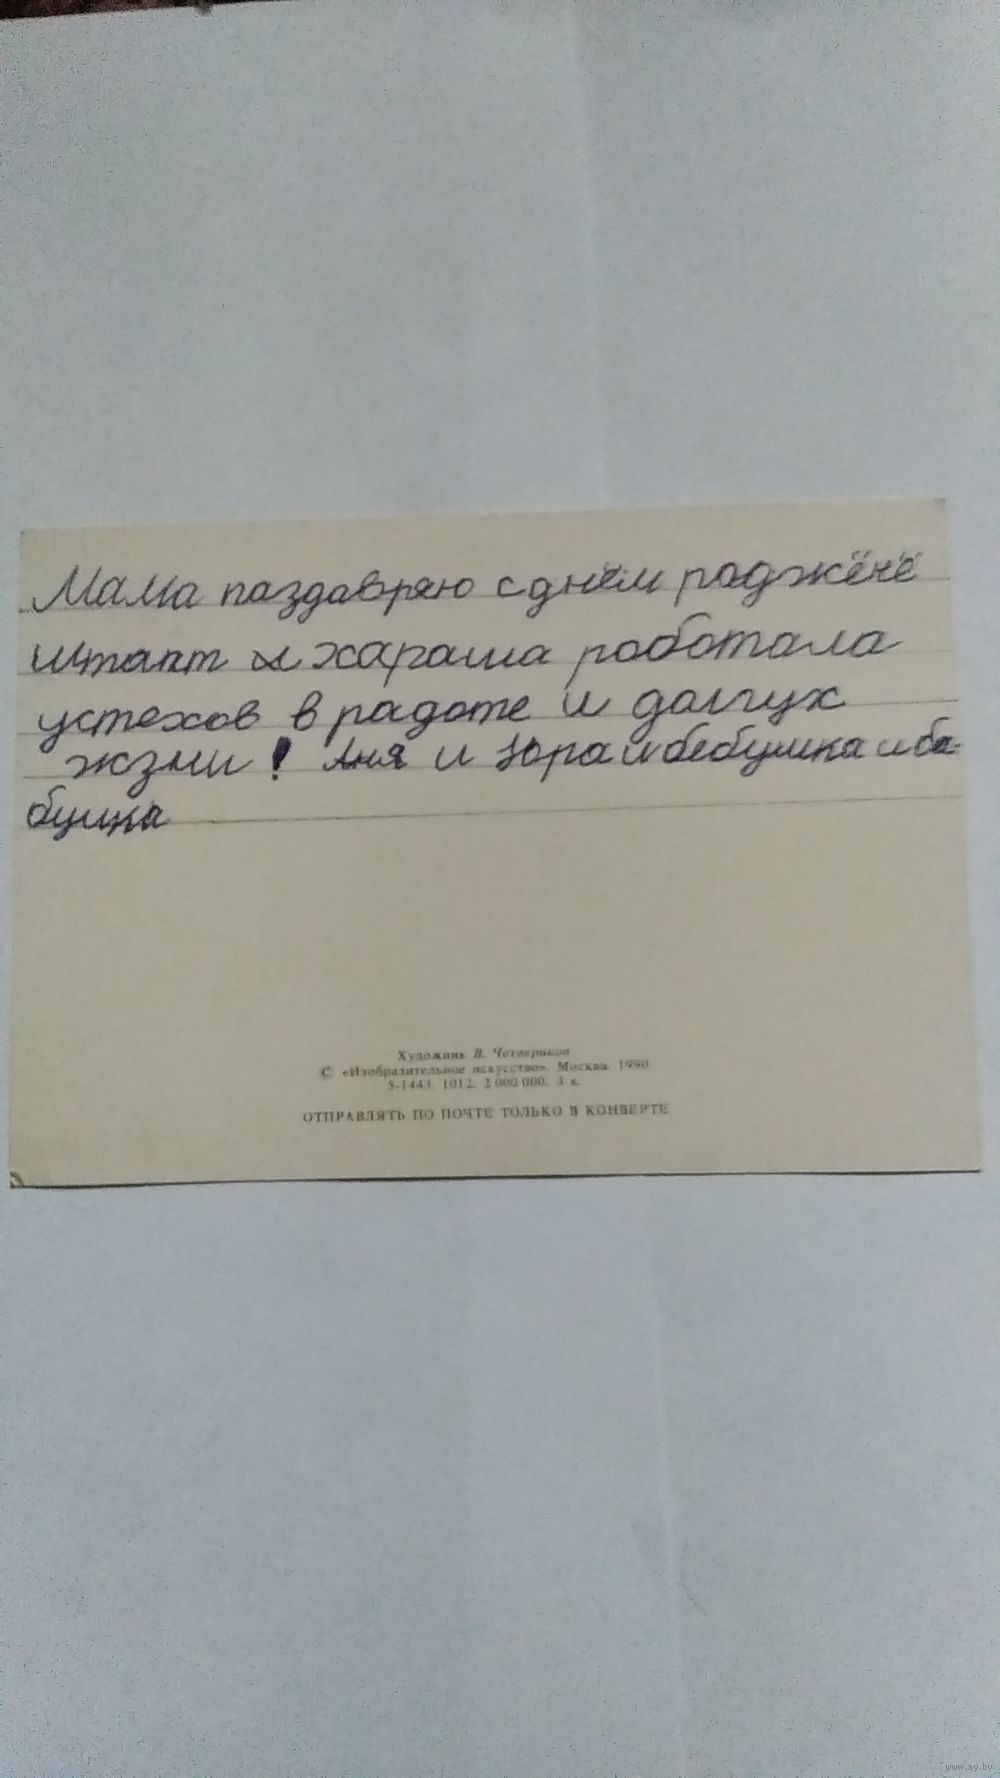 Мама паздавряю с днём раджёнё
штапт и хараша работала
устехов в радоте и долгух
жзми! Аня и Юра и бебушка и ба-
бушка
Художник В. Четвериков
© «Изобразительное искусство». Москва. 1990
5-1443. 1012. 2 000 000. 3 к.
ОТПРАВЛЯТЬ ПО ПОЧТЕ ТОЛЬКО В КОНВЕРТЕ
www.ay.by